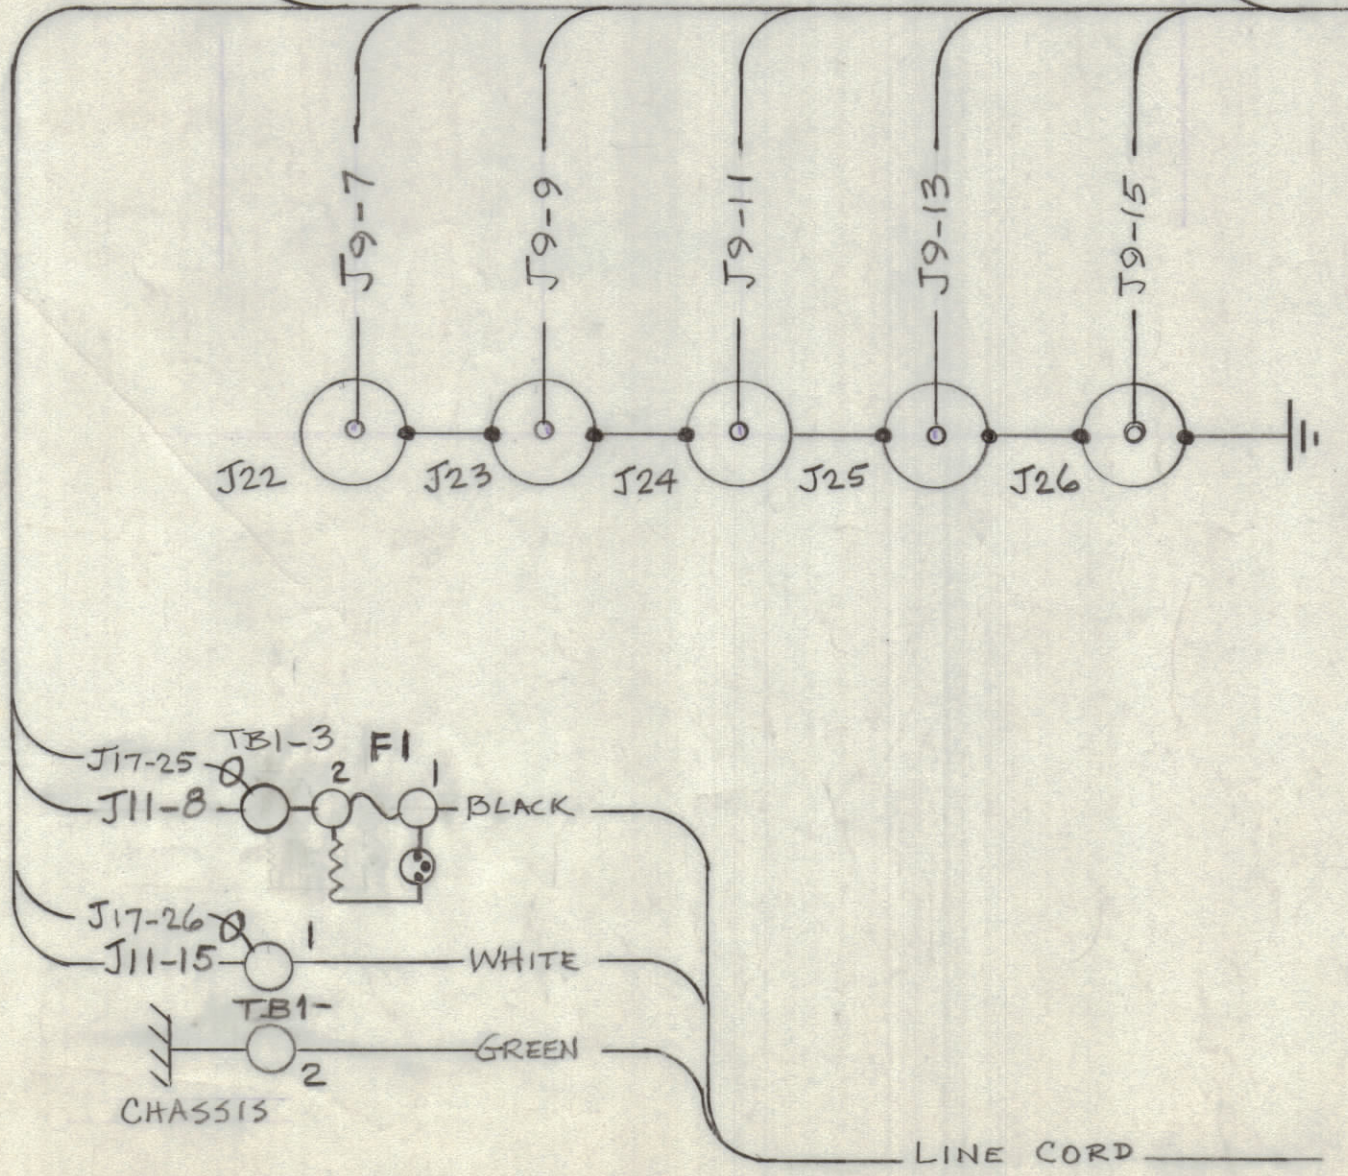 J9-7
J9-9
J9-11
J9-13
J9-15
J22
J23
J24
J25
J26
TB1-3 F1
J17-25
2 1
J11-8 BLACK
J17-26
1
J11-15 WHITE
TB1-
GREEN
2
CHASSIS
LINE CORD